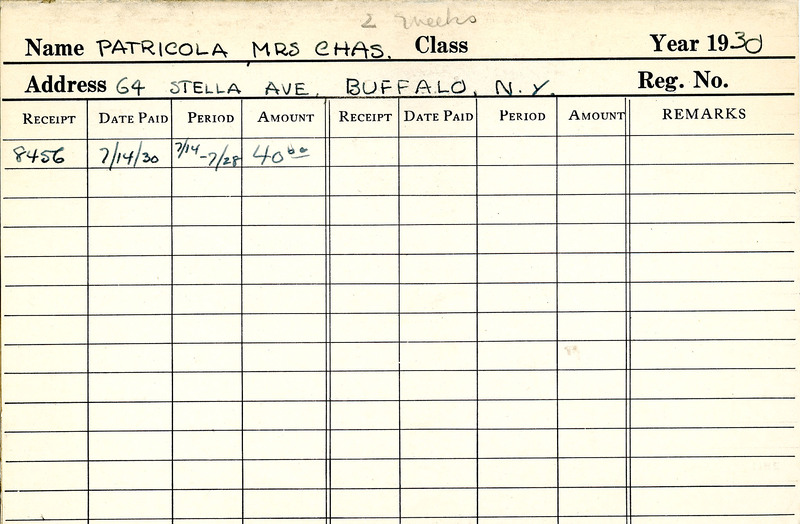 2 weeks
Name PATRICOLA, MRS CHAS. Class Year 1930
Address 64 STELLA AVE. BUFFALO, N.Y. Reg. No.
RECEIPT DATE PAID PERIOD AMOUNT RECEIPT DATE PAID PERIOD AMOUNT REMARKS
8456 7/14/30 7/14-7/28 40 00